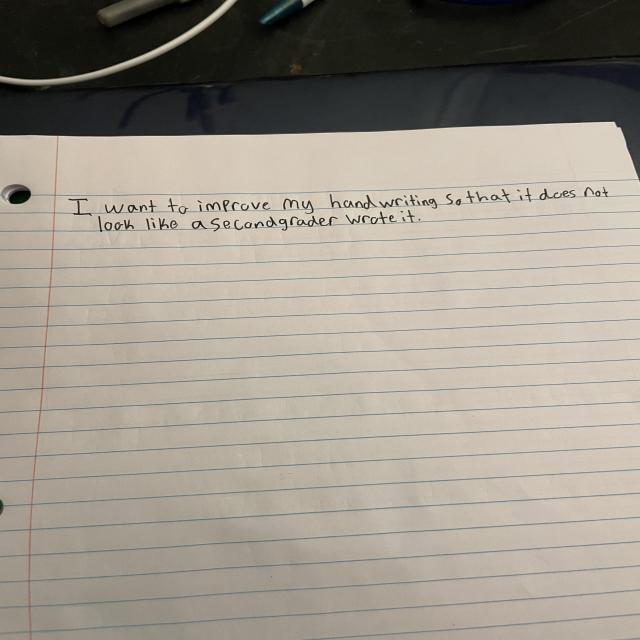 I want to improve my handwriting so that it does not
look like a secondgrader wrote it.